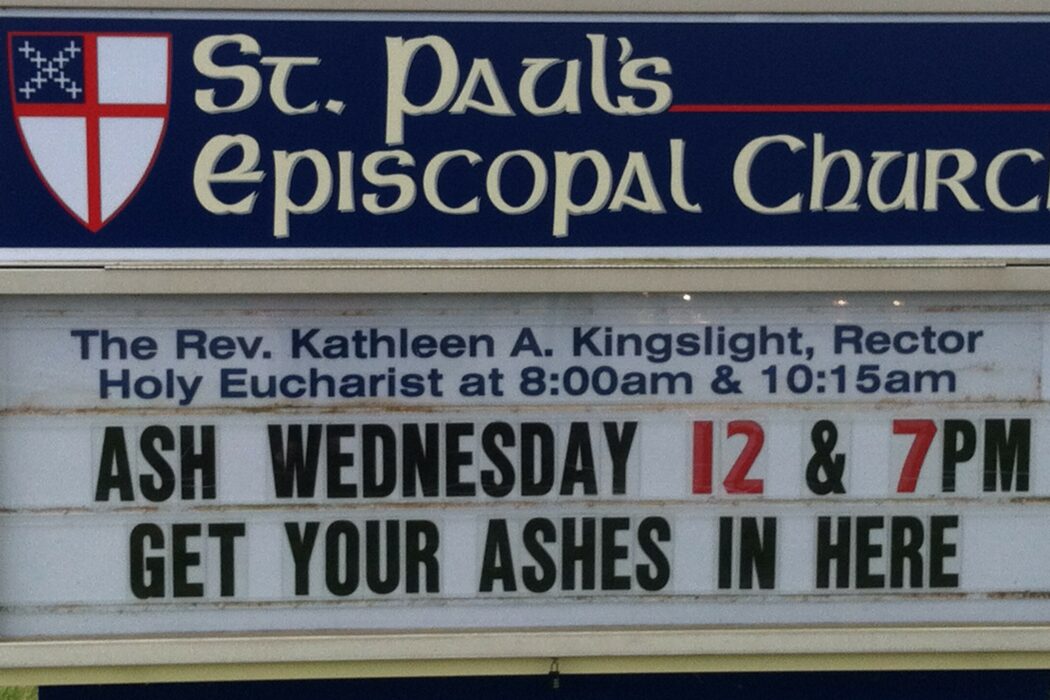 St. Paul's
Episcopal Churc
The Rev. Kathleen A. Kingslight, Rector
Holy Eucharist at 8:00am & 10:15am
ASH WEDNESDAY 12 & 7PM
GET YOUR ASHES IN HERE